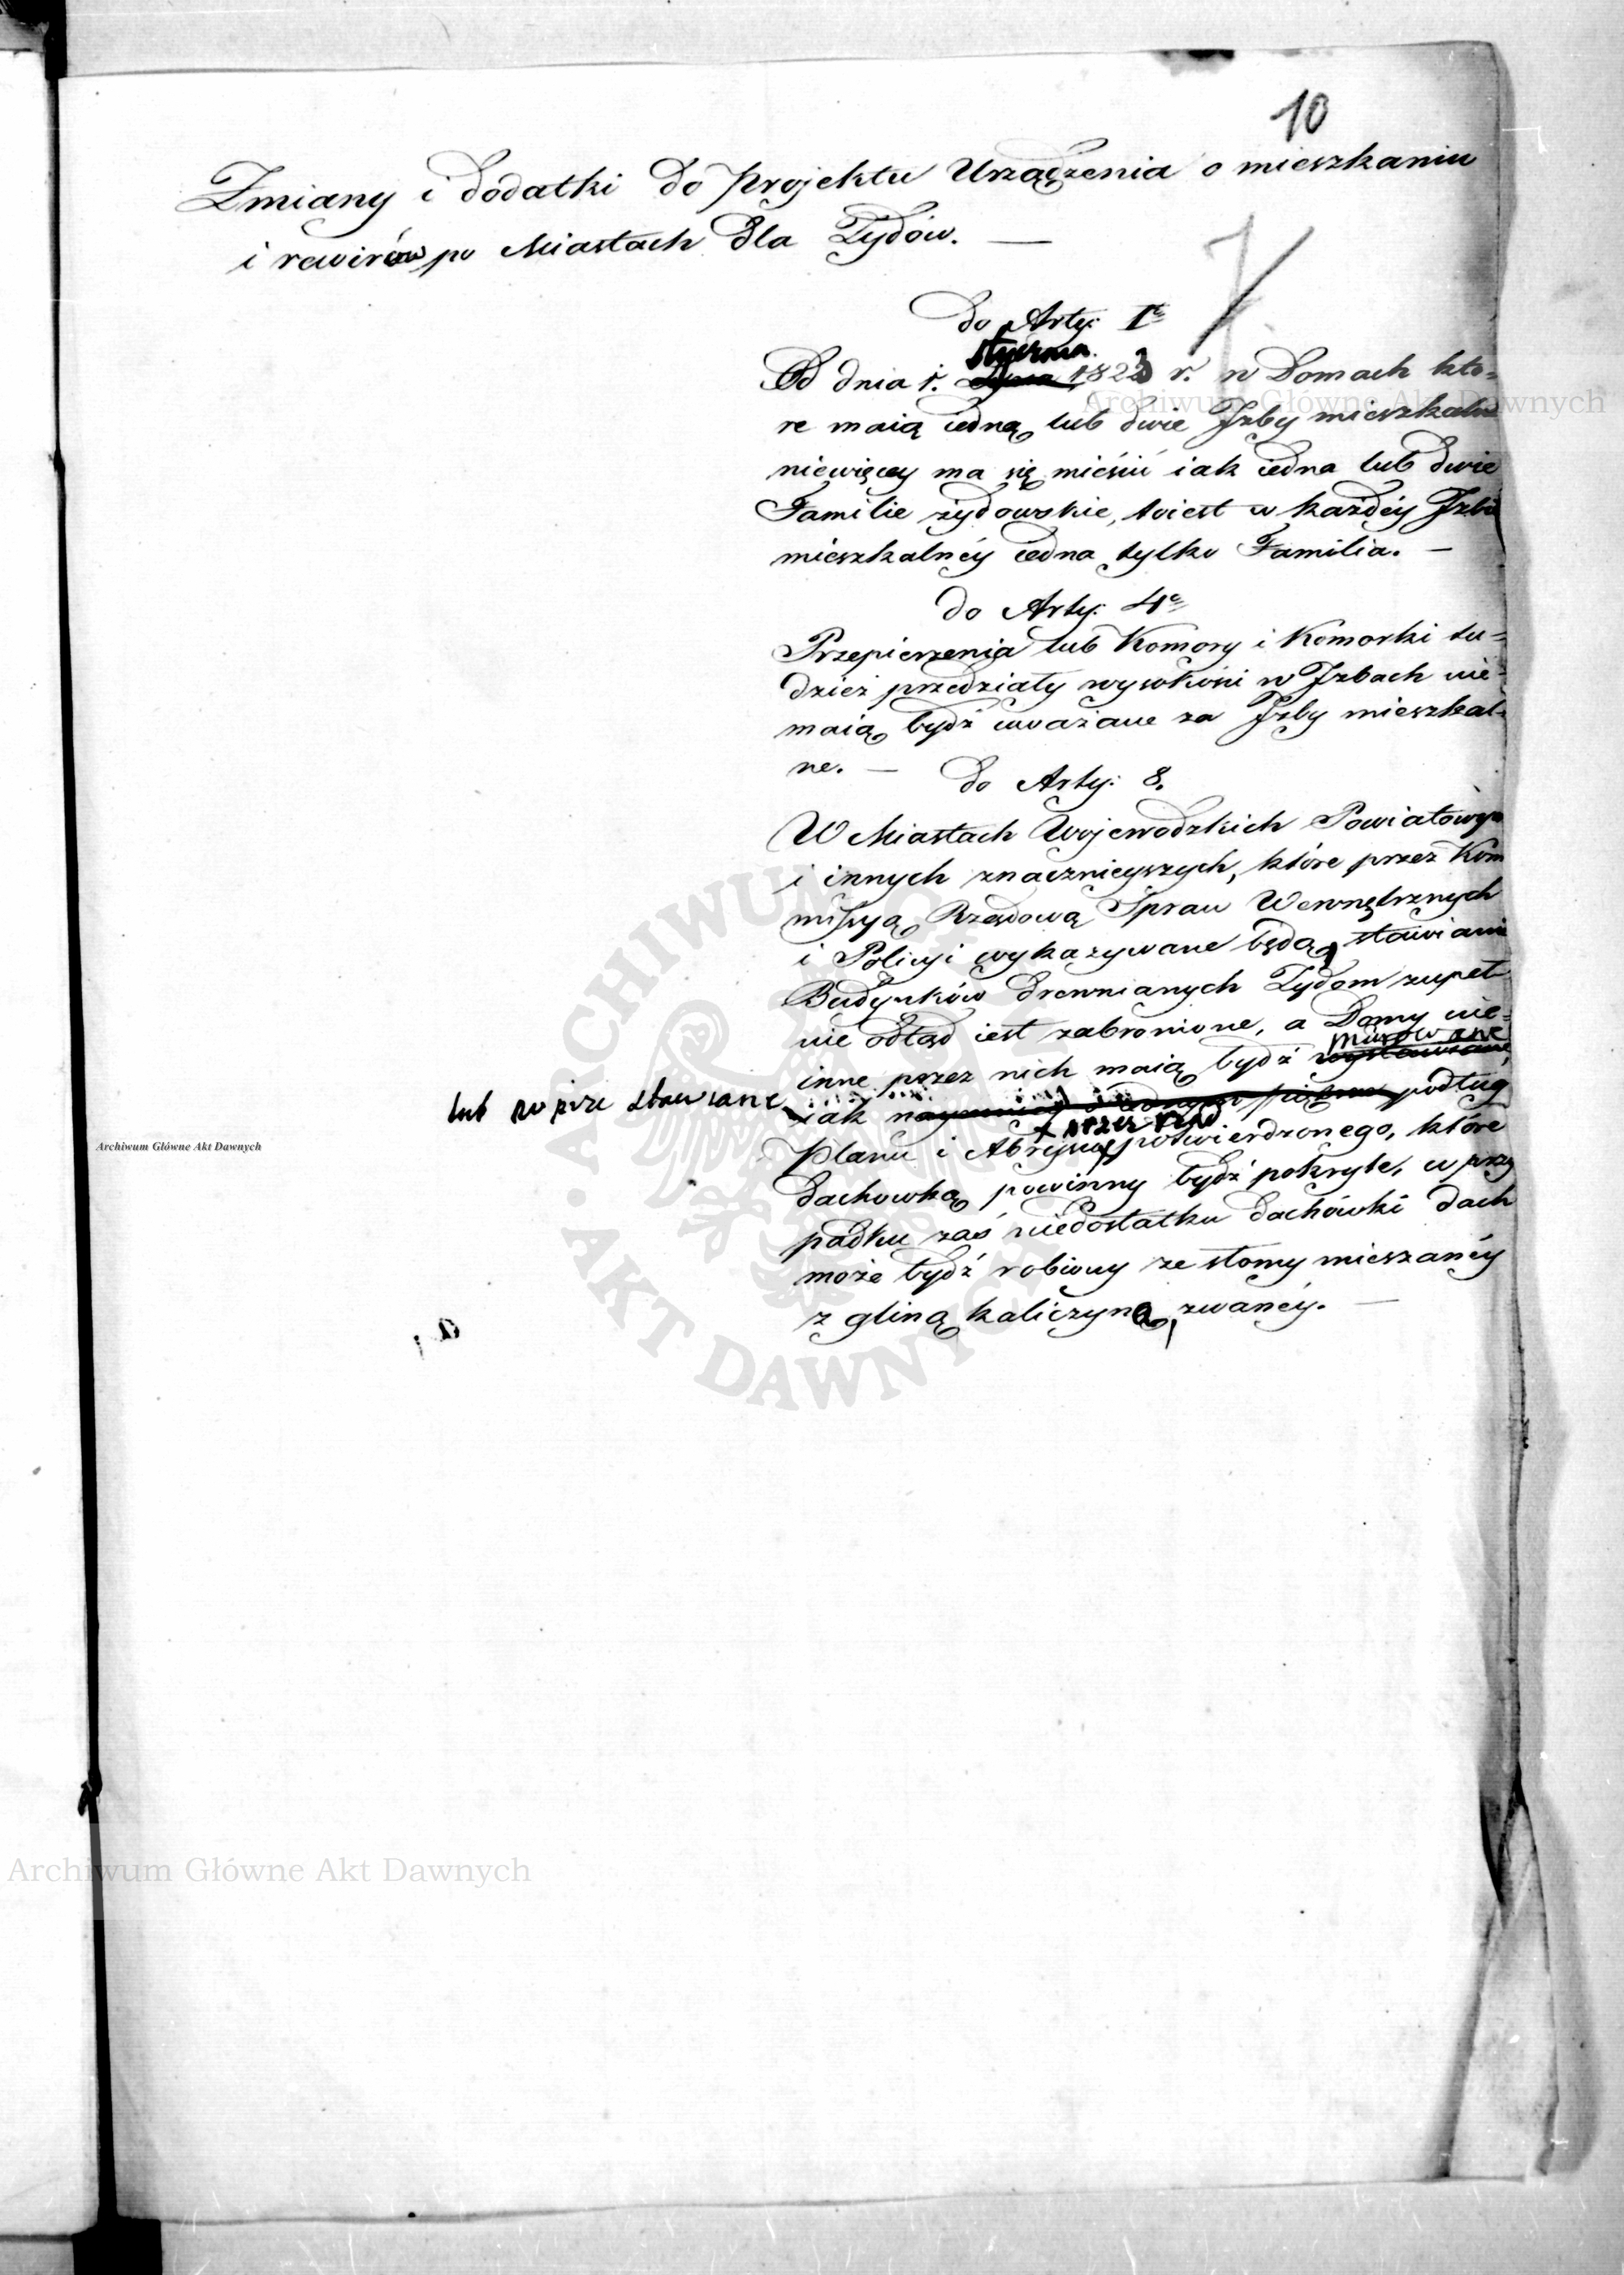 10
Zmiany i dodatki do projektu Urządzenia o mieszkaniu
i rewirów po Miastach dla Żydów. —
do Arty: 1º
stycznia
Od dnia 1. Lipca 1823 r. w Domach kto=
re maią iedną lub dwie Izby mieszkalne
niewięcey ma się mieścić iak iedna lub dwie
Familie żydowskie, toiest w każdéy Izbie
mieszkalnéy iedna tylko Familia. —
do Arty: 4º
Przepierzenia lub Komory i Komorki tu=
dzież przedziały wysokości w Izbach nie=
maią bydź uważane za Izby mieszkal=
ne. — do Arty: 8.
W Miastach Wojewodzkich Powiatowych
i innych znacznieyszych, które przez Kom
missyą Rządową Spraw Wewnętrznych
i Policyi wykazywane będą, stawianie
Budynków drewnianych Żydom zupeł=
nie odtąd iest zabronione, a Domy nie=
murowane
inne przez nich maią bydź wystawiane,
lub w pruski stawiane
iak naymniey o iednym piętrze podług
przez Rząd
Planu i Abrysu potwierdzonego, które
dachowką powinny bydź pokryte, w przy
padku zaś niedostatku dachówki dach
może bydź robiony ze słomy mieszanéy
z gliną kaliczyną zwanéy. —
Archiwum Główne Akt Dawnych
Archiwum Główne Akt Dawnych
Archiwum Główne Akt Dawnych
ARCHIWUM GŁÓWNE · AKT DAWNYCH ·